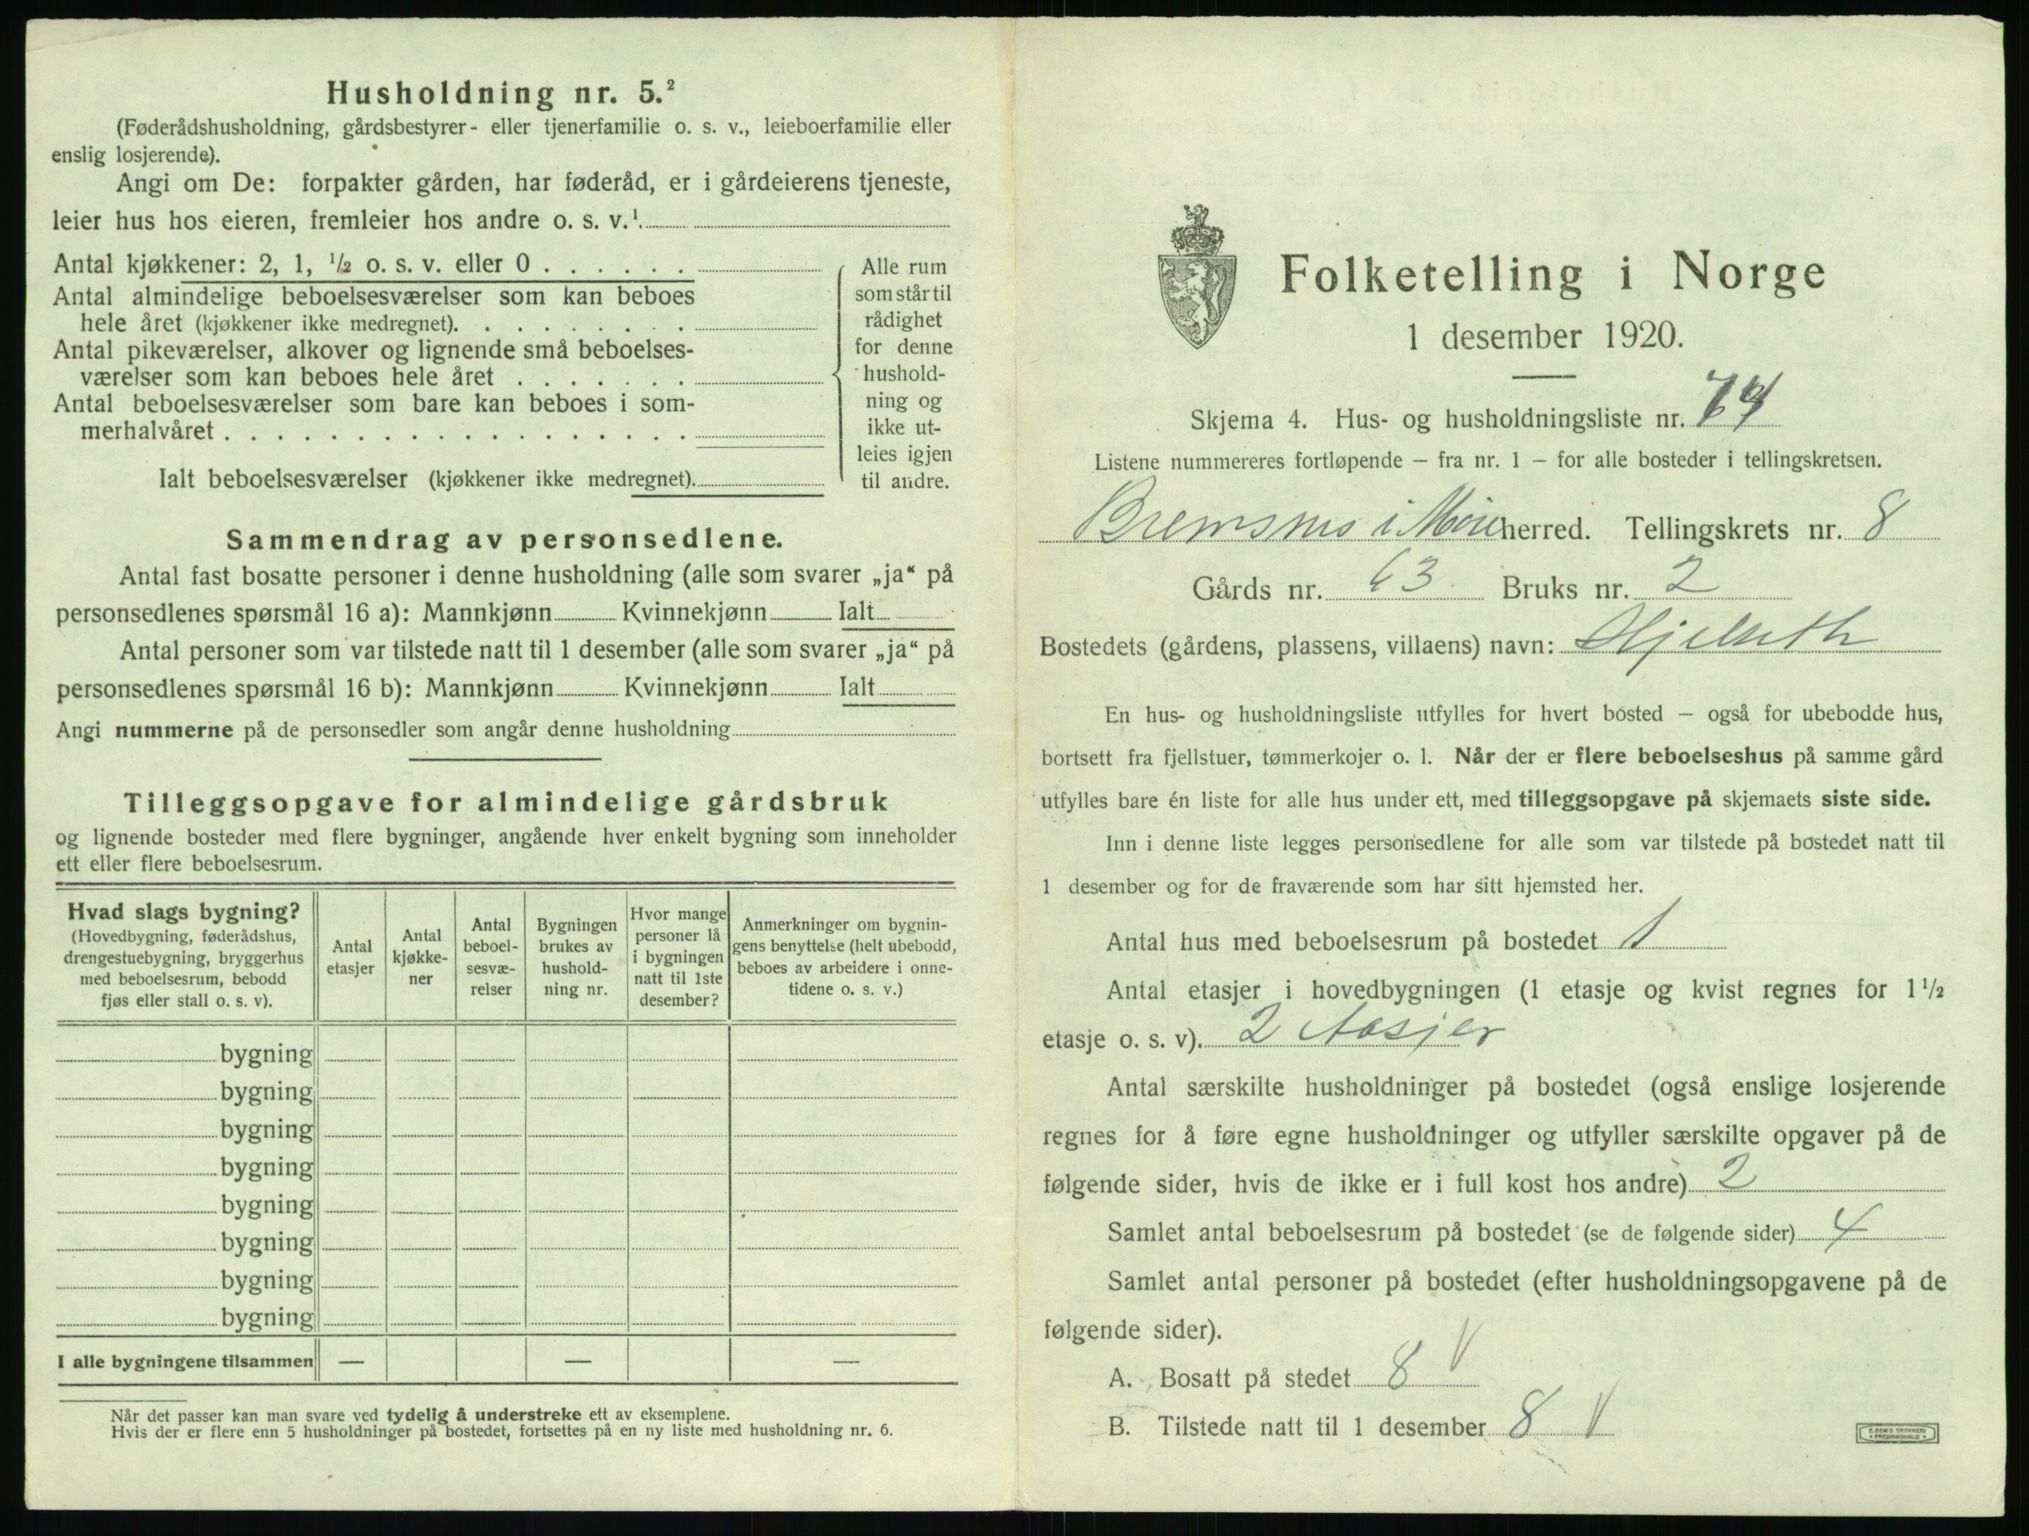 Husholdning nr. 5.²
(Føderådshusholdning, gårdsbestyrer- eller tjenerfamilie o. s. v., leieboerfamilie eller
enslig losjerende).
Angi om De: forpakter gården, har føderåd, er i gårdeierens tjeneste,
leier hus hos eieren, fremleier hos andre o. s. v.¹.
Antal kjøkkener: 2, 1, ½ o. s. v. eller 0 . . . . . .
Antal almindelige beboelsesværelser som kan beboes
hele året (kjøkkener ikke medregnet). . . . . . . . .
Antal pikeværelser, alkover og lignende små beboelses-
værelser som kan beboes hele året . . . . . . .
Antal beboelsesværelser som bare kan beboes i som-
merhalvåret . . . . . . . . . . . . . . . . . .
Ialt beboelsesværelser (kjøkkener ikke medregnet).
Alle rum
som står til
rådighet
for denne
hushold-
ning og
ikke ut-
leies igjen
til andre.
Sammendrag av personsedlene.
Antal fast bosatte personer i denne husholdning (alle som svarer „ja“ på
personsedlenes spørsmål 16 a): Mannkjønn Kvinnekjønn Ialt
Antal personer som var tilstede natt til 1 desember (alle som svarer „ja“ på
personsedlenes spørsmål 16 b): Mannkjønn Kvinnekjønn Ialt
Angi nummerne på de personsedler som angår denne husholdning
Tilleggsopgave for almindelige gårdsbruk
og lignende bosteder med flere bygninger, angående hver enkelt bygning som inneholder
ett eller flere beboelsesrum.
Hvad slags bygning?
(Hovedbygning, føderådshus,
drengestuebygning, bryggerhus
med beboelsesrum, bebodd
fjøs eller stall o. s. v).
Antal
etasjer
Antal
kjøkke-
ner
Antal
beboel-
sesvæ-
relser
Bygningen
brukes av
hushold-
ning nr.
Hvor mange
personer lå
i bygningen
natt til 1ste
desember?
Anmerkninger om bygnin-
gens benyttelse (helt ubebodd,
beboes av arbeidere i onne-
tidene o. s. v.)
bygning
bygning
bygning
bygning
bygning
bygning
bygning
bygning
I alle bygningene tilsammen — — —
Når det passer kan man svare ved tydelig å understreke ett av eksemplene.
Hvis der er flere enn 5 husholdninger på bostedet, fortsettes på en ny liste med husholdning nr. 6.
Folketelling i Norge
1 desember 1920.
Skjema 4. Hus- og husholdningsliste nr.
Listene nummereres fortløpende – fra nr. 1 – for alle bosteder i tellingskretsen.
Bremsnes i Møre herred. Tellingskrets nr. 8
Gårds nr. 63 Bruks nr. 2
Bostedets (gårdens, plassens, villaens) navn:
En hus- og husholdningsliste utfylles for hvert bosted – også for ubebodde hus,
bortsett fra fjellstuer, tømmerkojer o. l. Når der er flere beboelseshus på samme gård
utfylles bare én liste for alle hus under ett, med tilleggsopgave på skjemaets siste side.
Inn i denne liste legges personsedlene for alle som var tilstede på bostedet natt til
1 desember og for de fraværende som har sitt hjemsted her.
Antal hus med beboelsesrum på bostedet 1
Antal etasjer i hovedbygningen (1 etasje og kvist regnes for 1½
etasje o. s. v). 2
Antal særskilte husholdninger på bostedet (også enslige losjerende
regnes for å føre egne husholdninger og utfyller særskilte opgaver på de
følgende sider, hvis de ikke er i full kost hos andre) 2
Samlet antal beboelsesrum på bostedet (se de følgende sider) 4
Samlet antal personer på bostedet (efter husholdningsopgavene på de
følgende sider).
A. Bosatt på stedet 8 V
B. Tilstede natt til 1 desember 8 V
E. SEM'S TRYKKERI
FREDRIKSHALD